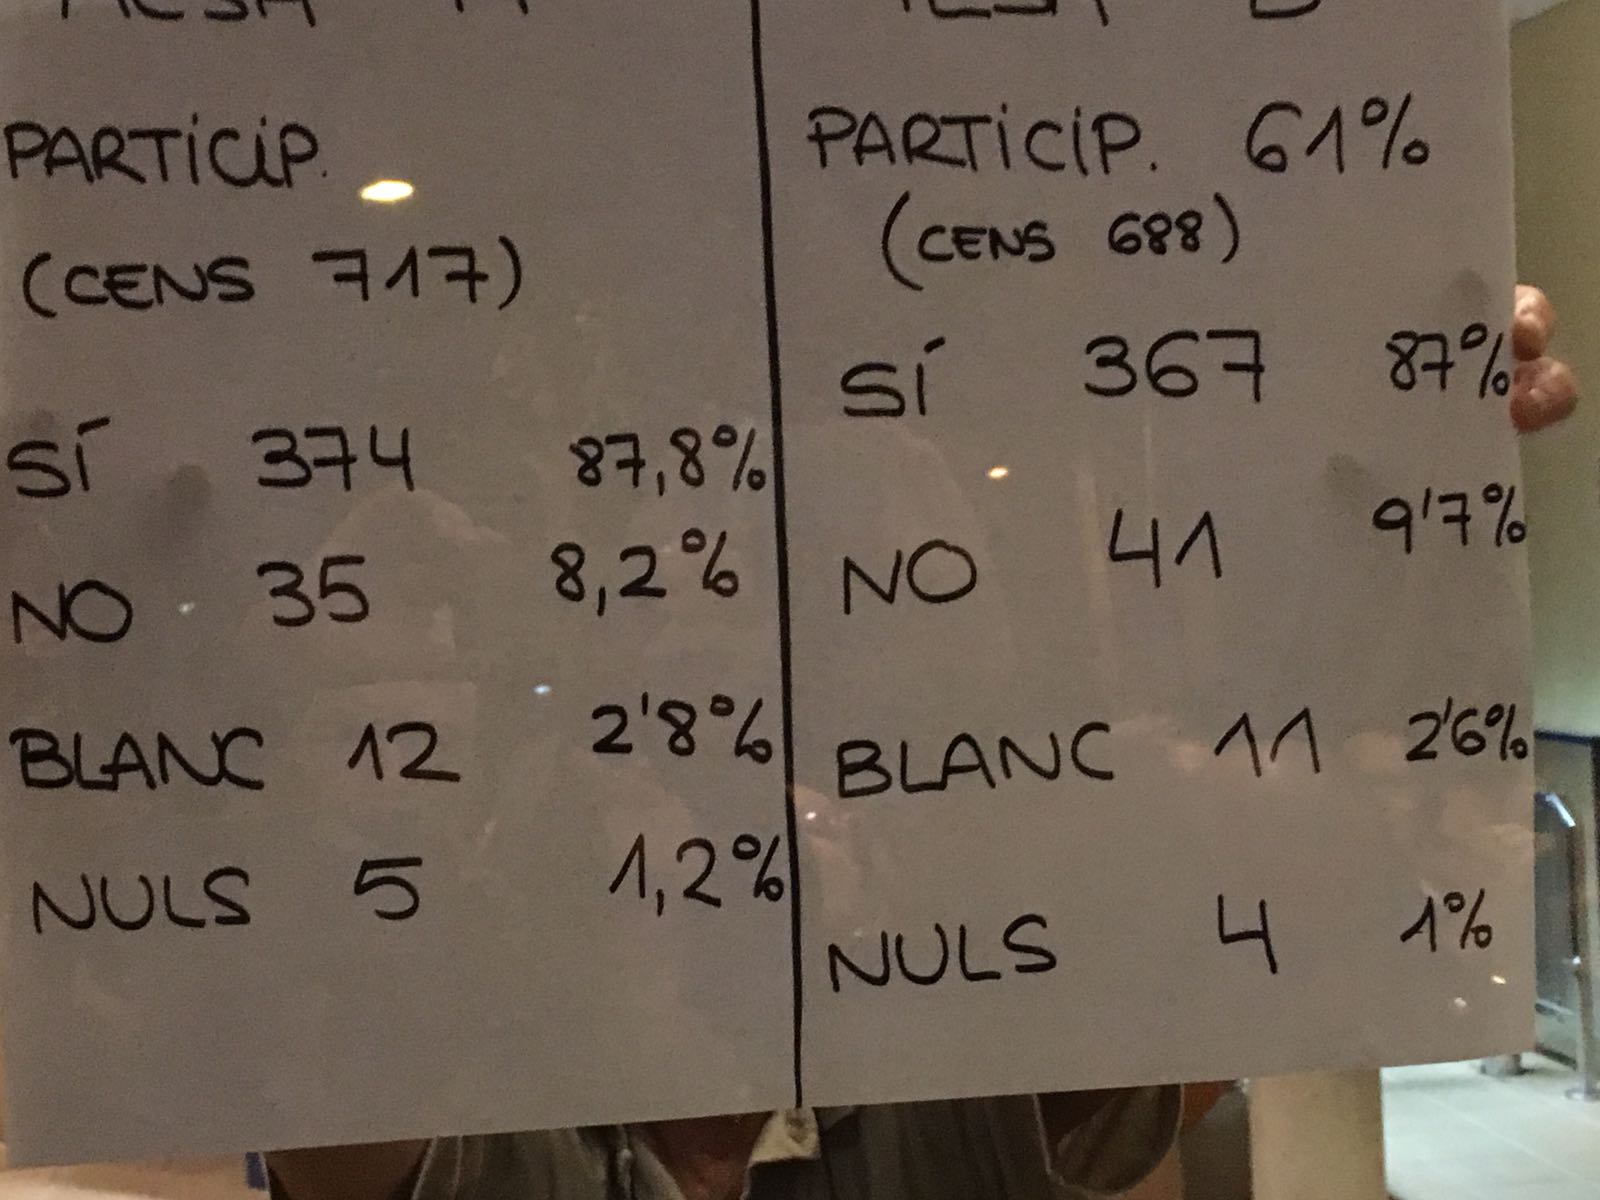 MESA A
PARTICIP.
(CENS 717)
SÍ 374 87,8%
NO 35 8,2%
BLANC 12 2'8%
NULS 5 1,2%
MESA B
PARTICIP. 61%
(CENS 688)
SÍ 367 87%
NO 41 9'7%
BLANC 11 2'6%
NULS 4 1%